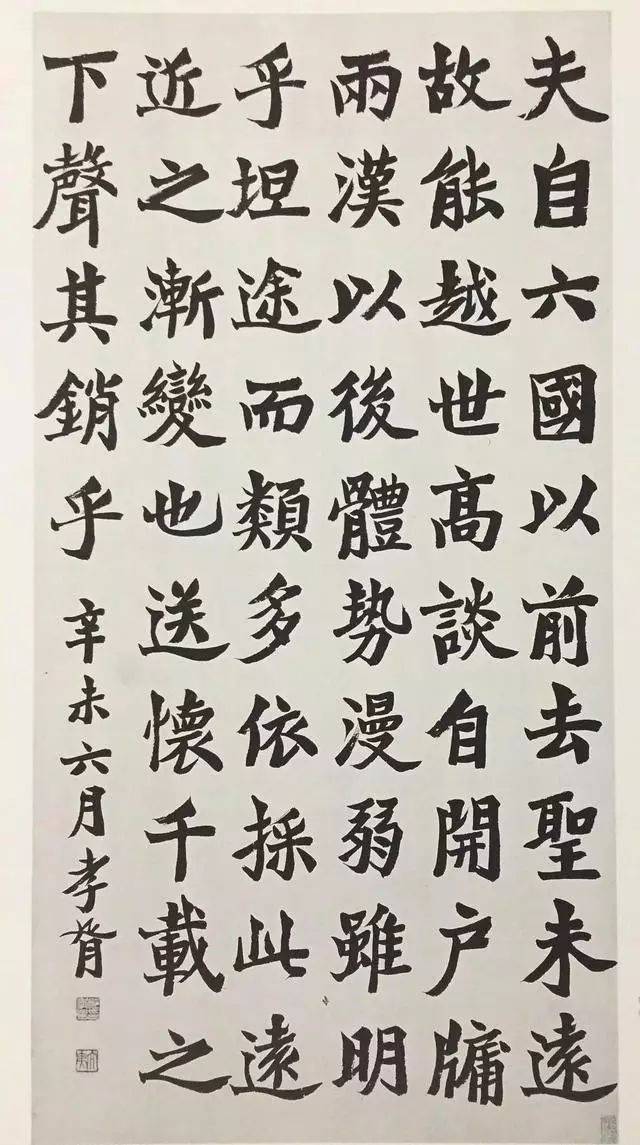 夫自六國以前去聖未遠
故能越世高談自開戶牖
兩漢以後體勢漫弱雖明
乎坦途而類多依採此遠
近之漸變也送懷千載之
下聲其銷乎 辛未六月孝胥